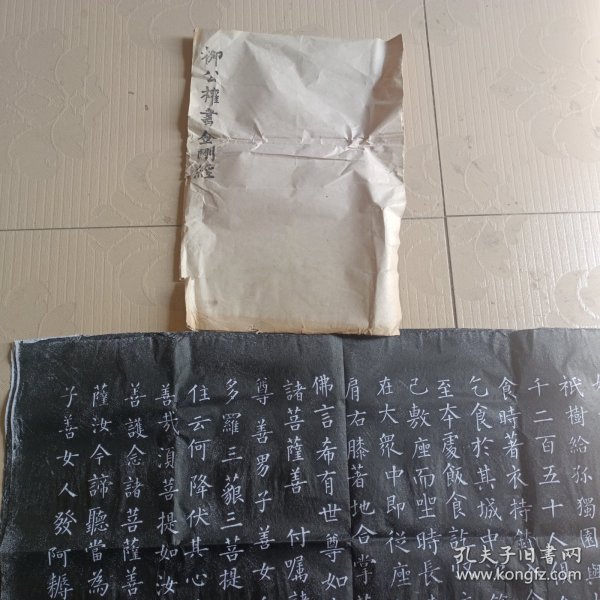 柳公權書金剛經
祇樹給孤獨園與
千二百五十人俱
食時著衣持鉢
乞食於其城中
至本處飯食訖收
已敷座而坐時長
在大衆中即從座
肩右膝著地合掌
佛言希有世尊如
諸菩薩善付囑諸
尊善男子善女
多羅三藐三菩提
住云何降伏其心
善哉須菩提如汝
善護念諸菩薩善
薩汝今諦聽當為
子善女人發阿耨
孔夫子旧书网
www.kongfz.com